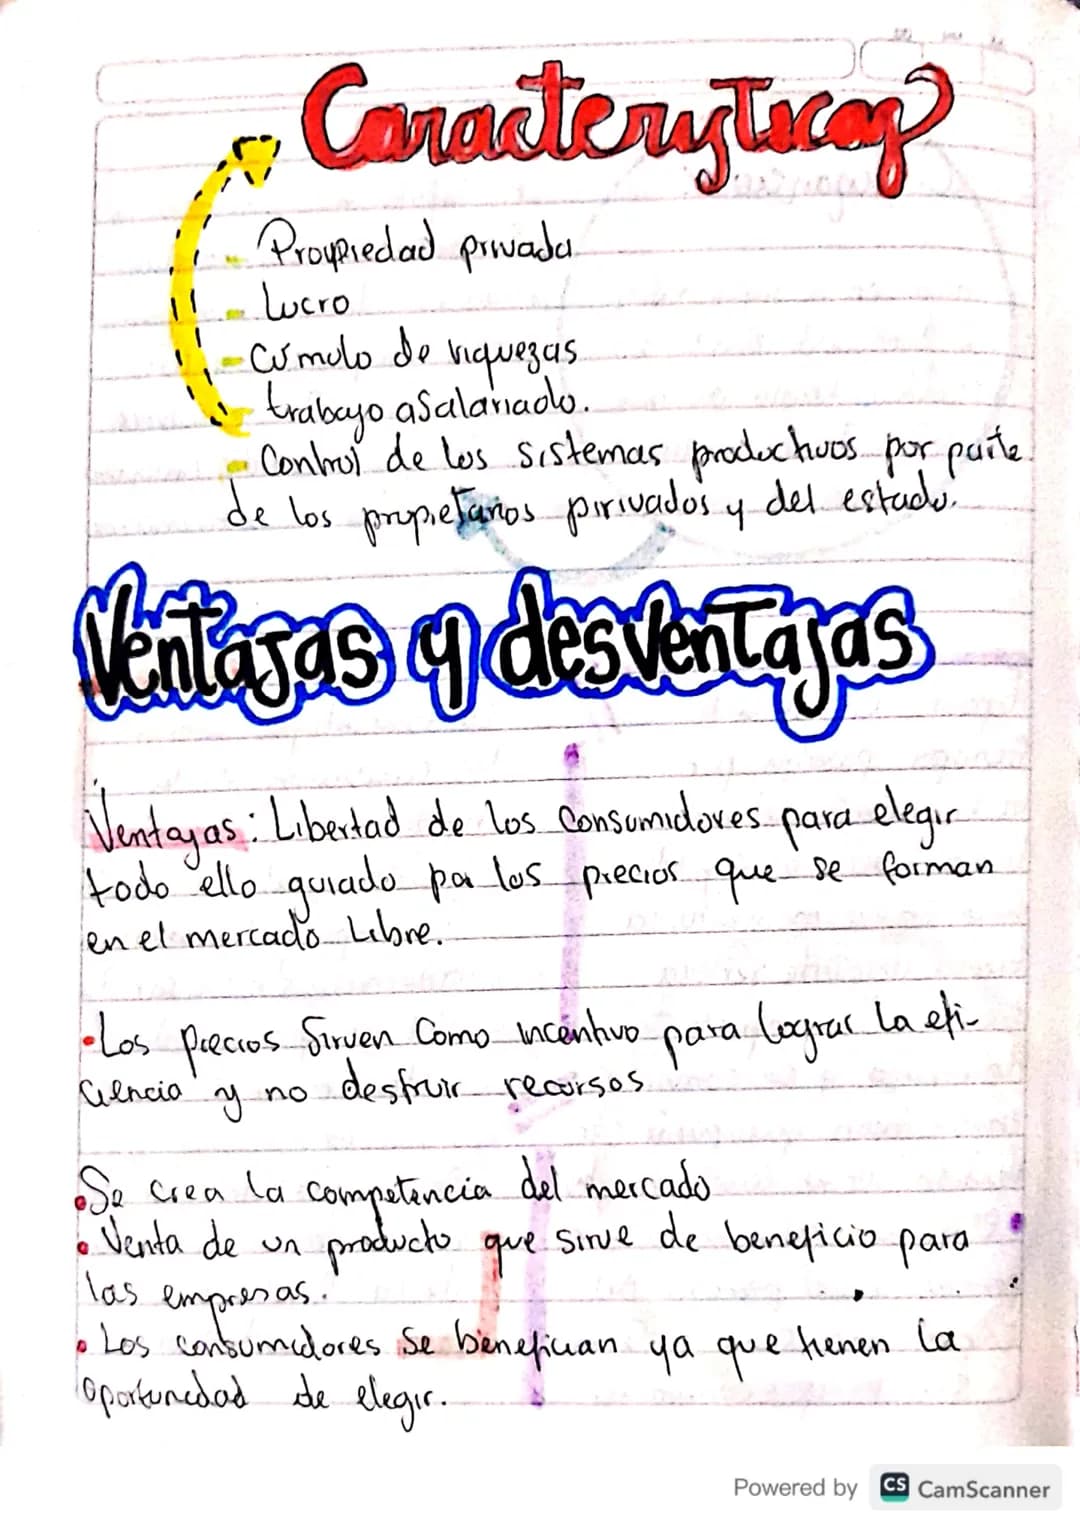 Caracterysticas
- Proypiedad privada
- Lucro
- Cúmulo de riquezas
- trabayo asalariado.
- Control de los sistemas productivos por parte
de los propietarios pirivados y del estado.
Ventajas y desventajas
Ventayas: Libertad de los Consumidores para elegir
todo ello guiado por los precios que se forman
en el mercado Libre.
• Los precios Sirven Como incentivo para lograr la efi-
ciencia y no destruir recursos
• Se crea la competencia del mercado
• Venta de un producto que sirve de beneficio para
las empresas.
• Los consumidores Se benefician ya que tienen la
oportunidad de elegir.
Powered by CS CamScanner